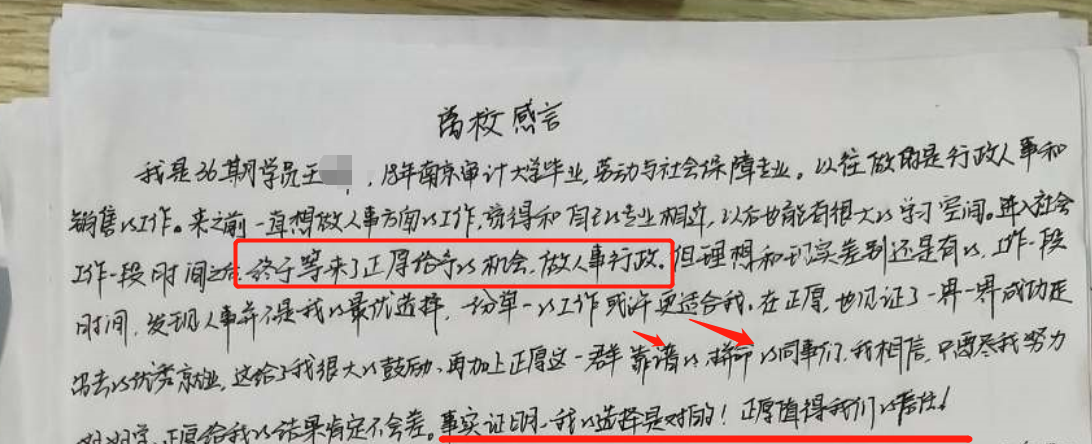 离校感言
我是36期学员王 ，18年南京审计大学毕业，劳动与社会保障专业。以往做的是行政人事和
销售的工作。来之前一直想做人事方向的工作，觉得和自己的专业相近，以后也能有很大的学习空间。进入社会
工作一段时间之后，终于等来了正厚给予的机会，做人事行政。但理想和现实差别还是有的，工作一段
时间，发现人事并不是我的最优选择，一份单一的工作或许更适合我。在正厚，也见证了一界一界成功走
出去的优秀京业，这给了我很大的鼓励，再加上正厚这一群靠谱的，拼命的同事们，我相信，只要尽我努力
好好学，正厚给我的结果肯定不会差。事实证明，我的选择是对的！正厚值得我们的信任！